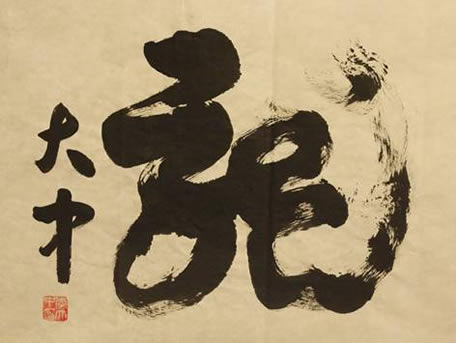 龍
大中